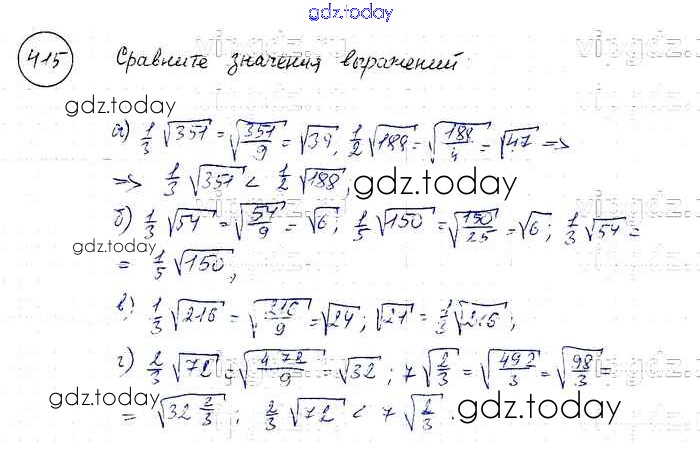 gdz.today
415 Сравните значения выражений
gdz.today
а) 1/3 √351 = √(351/9) = √39, 1/2 √188 = √(188/4) = √47 =>
=> 1/3 √351 < 1/2 √188,
gdz.today
б) 1/3 √54 = √(54/9) = √6; 1/5 √150 = √(150/25) = √6; 1/3 √54 =
gdz.today
= 1/5 √150,
в) 1/3 √216 = √(216/9) = √24; √21 = 1/3 √216;
г) 2/3 √72 = √(4·72/9) = √32; 7 √(2/3) = √(49·2/3) = √(98/3) =
gdz.today
= √(32 2/3); 2/3 √72 < 7 √(2/3).
gdz.today